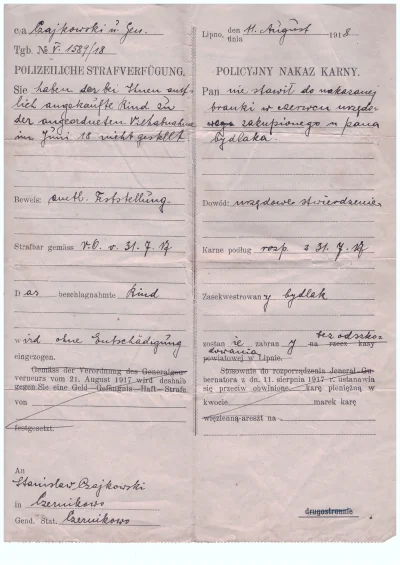 c/a Czajkowski u. Gen.
Tgb. № V. 1587/18
POLIZEILICHE STRAFVERFÜGUNG.
Sie haben das bei Ihnen amt-
lich angekaufte Rind zu
der angeordneten Viehabnahme
im Juni 18 nicht gestellt
Beweis: amtl. Feststellung
Strafbar gemäss V.O. v. 31. 7. 17
Das beschlagnahmte Rind
wird ohne Entschädigung
eingezogen.
Gemäss der Verordnung des Generalgou-
verneurs vom 21. August 1917 wird deshalb
gegen Sie eine Geld- Gefängnis- Haft- Strafe
von
festgesetzt.
An
Stanislaw Czajkowski
in Czernikowo
Gend. Stat. Czernikowo
Lipno, den
dnia 11. August 1918
POLICYJNY NAKAZ KARNY.
Pan nie stawił do nakazanej
branki w czerwcu urzędo-
zakupionego u pana
bydlaka.
Dowód: urzędowe stwierdzenie
Karne podług rozp. z 31. 7. 17
Zasekwestrowany bydlak
zostanie zabrany bez odszko-
dowania na rzecz kasy
powiatowej w Lipnie.
Stosownie do rozporządzenia Jenerał-Gu-
bernatora z dn. 11. sierpnia 1917 r. ustanawia
się przeciw obwinione karę pieniężną w
kwocie marek karę
więzienną-areszt na
drugostronnie